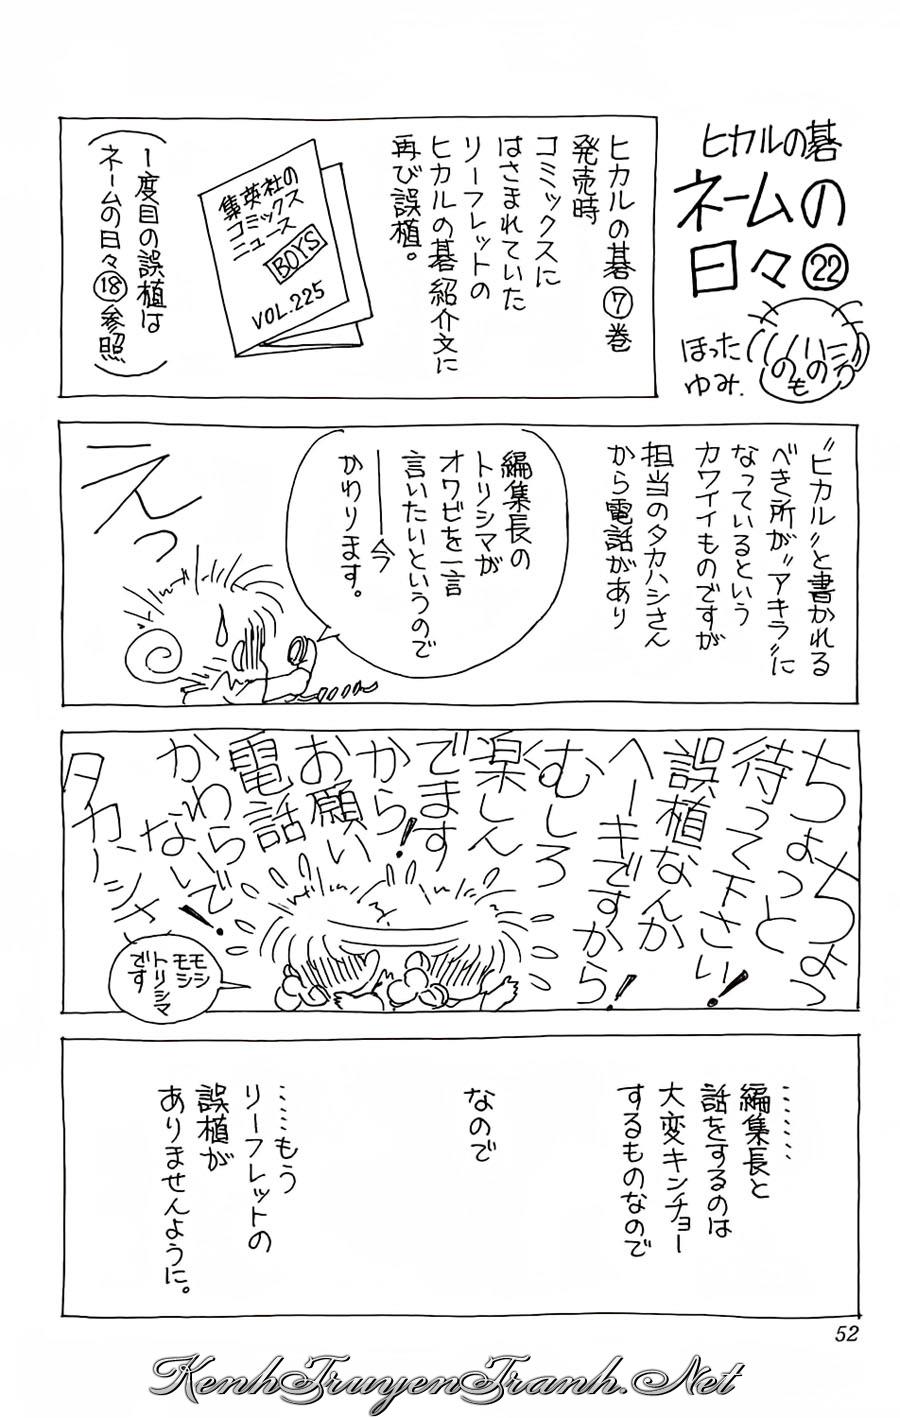 ヒカルの碁
ネームの
日々㉒
ほった
ゆみ.
ヒカルの碁⑦巻
発売時
コミックスに
はさまれていた
リーフレットの
ヒカルの碁紹介文に
再び誤植。
集英社の
コミックス
ニュース
BOYS
VOL.225
(1度目の誤植は
ネームの日々⑱参照)
"ヒカル"と書かれる
べき所が"アキラ"に
なっているという
カワイイものですが
担当のタカハシさん
から電話があり
編集長の
トリシマが
オワビを一言
言いたいというので
――今
かわります。
えっ
ちょっちょっ
ちょっと
待って下さい!
誤植なんか
ヘーキですから!
むしろ
楽しん
でます
から!
お願い
電話
かわらないで!
タカハシさ
モシ
モシ
トリシマ
です
……
編集長と
話をするのは
大変キンチョー
するものなので
なので
……もう
リーフレットの
誤植が
ありませんように。
52
KenhTruyenTranh.Net